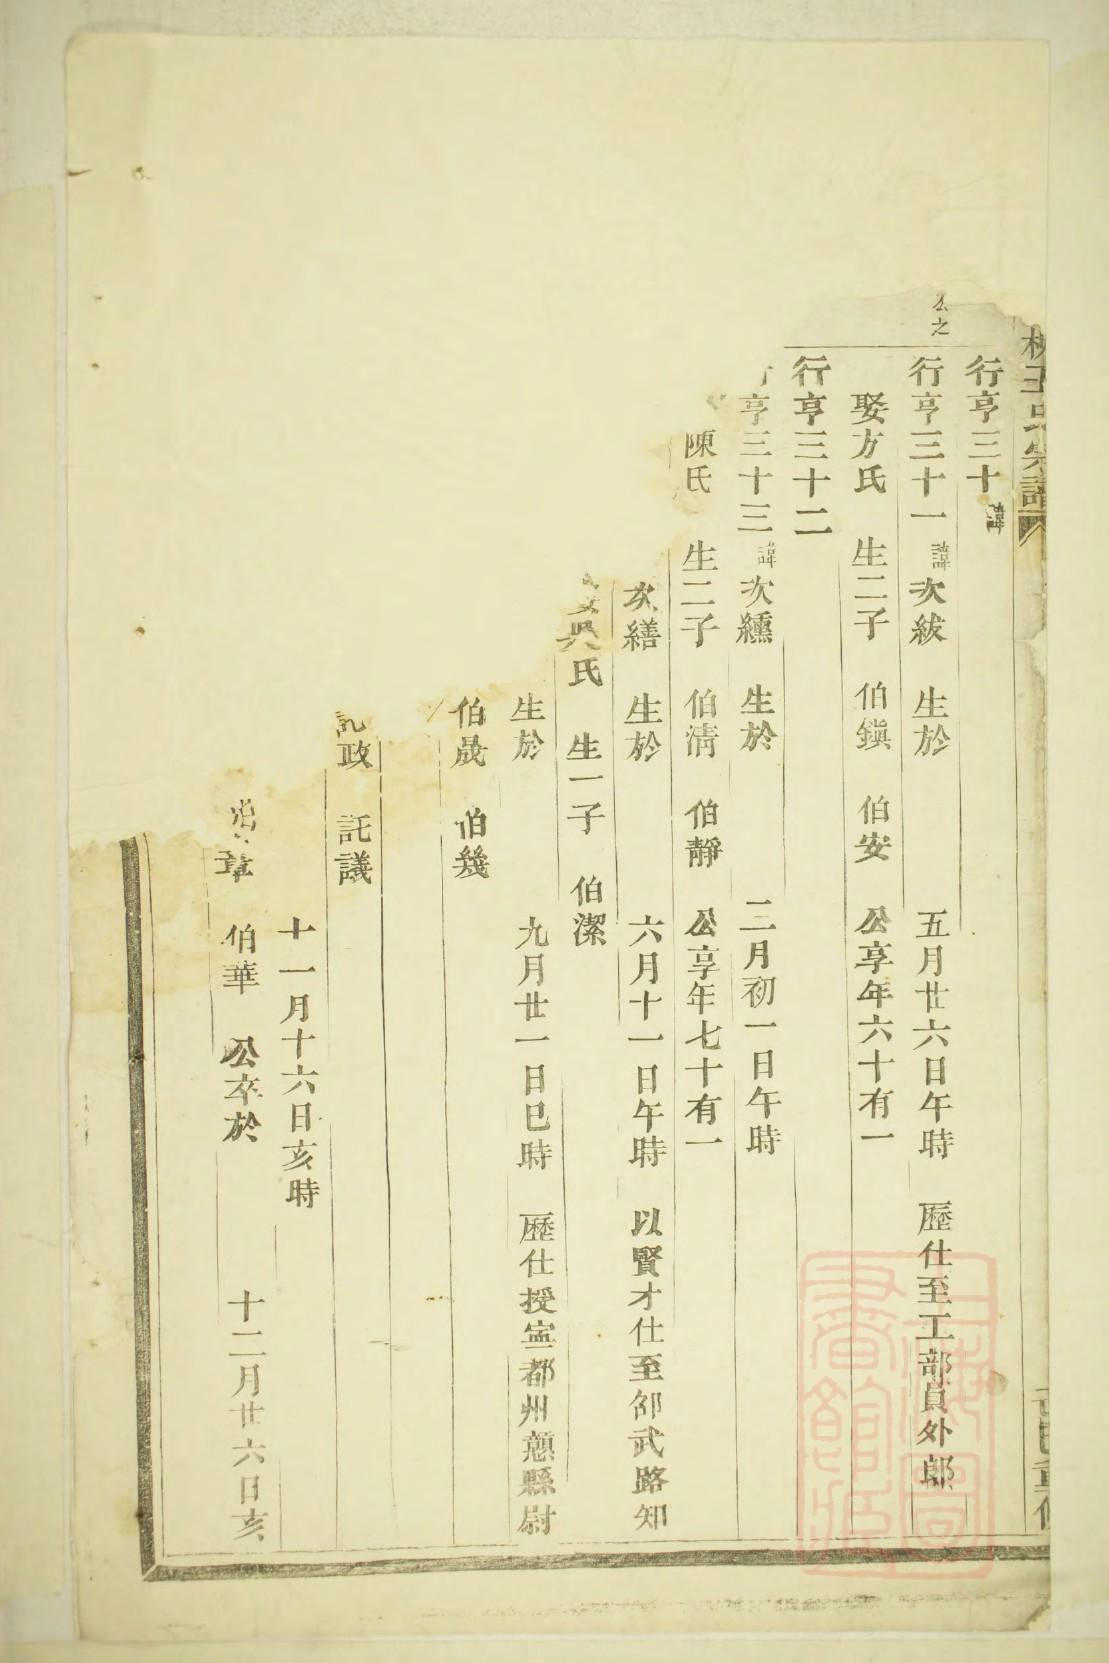 王氏宗譜
行亨三十 諱
公之
行亨三十一 諱次紱 生於 五月廿六日午時 歷仕至工部員外郎
娶方氏 生二子 伯鎭 伯安 公享年六十有一
行亨三十二
亨三十三 諱次纁 生於 二月初一日午時
陳氏 生二子 伯淸 伯靜 公享年七十有一
次繕 生於 六月十一日午時 以賢才仕至邵武路知
吳氏 生一子 伯潔
生於 九月廿一日巳時 歷仕授寧都州 縣尉
伯晟 伯幾
政 託議
十一月十六日亥時
章 伯華 公卒於 十二月廿六日亥